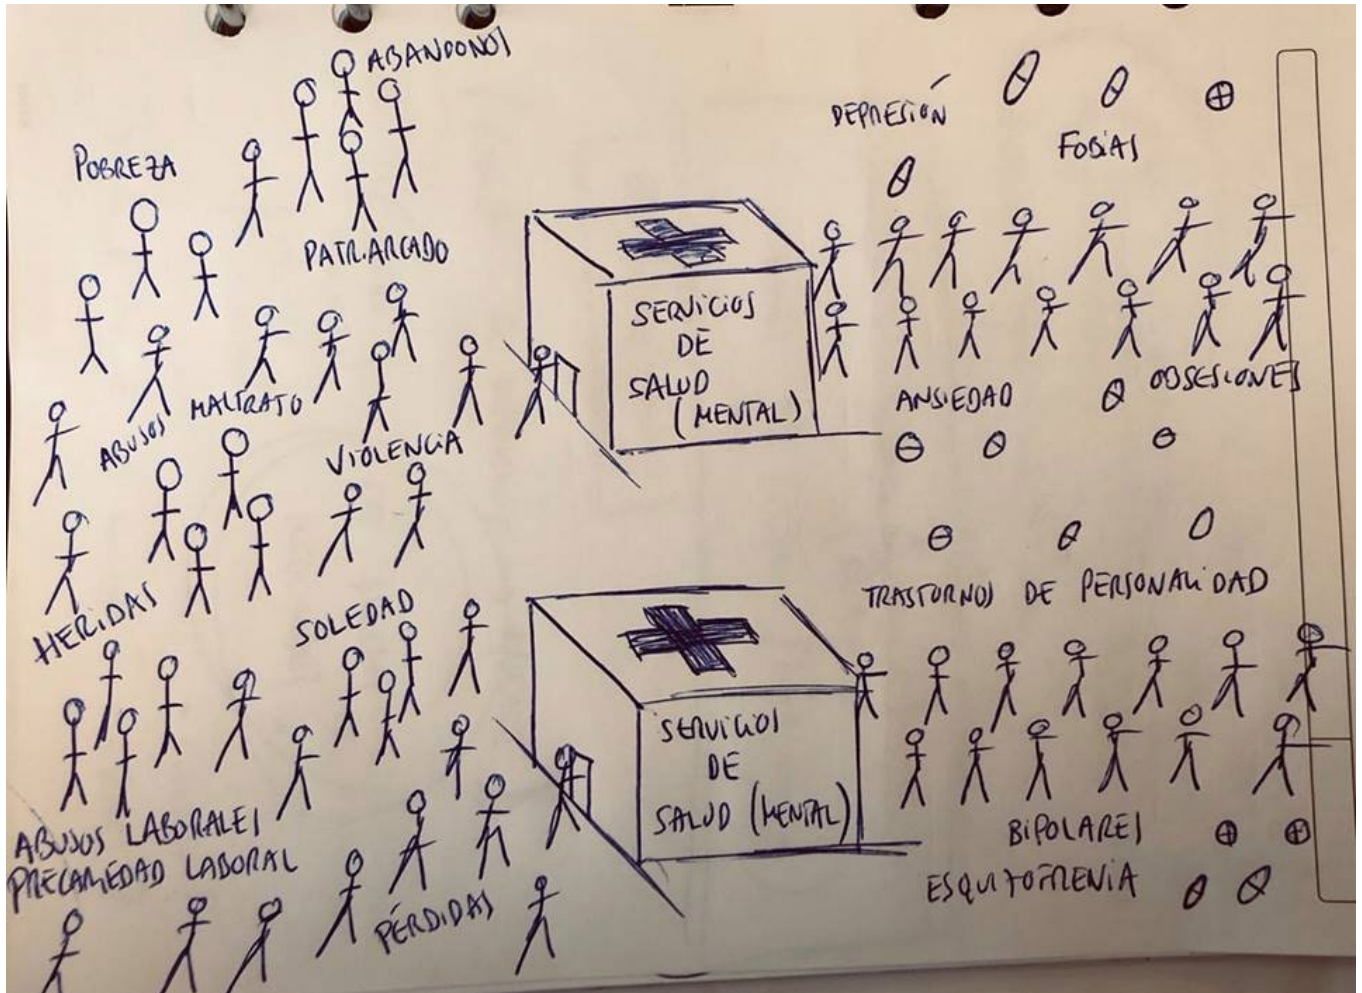 ABANDONOS
POBREZA
PATRIARCADO
ABUSOS
MALTRATO
VIOLENCIA
HERIDAS
SOLEDAD
ABUSOS LABORALES
PRECARIEDAD LABORAL
PÉRDIDAS
SERVICIOS
DE
SALUD
(MENTAL)
SERVICIOS
DE
SALUD (MENTAL)
DEPRESIÓN
FOBIAS
ANSIEDAD
OBSESIONES
TRASTORNOS DE PERSONALIDAD
BIPOLARES
ESQUIZOFRENIA